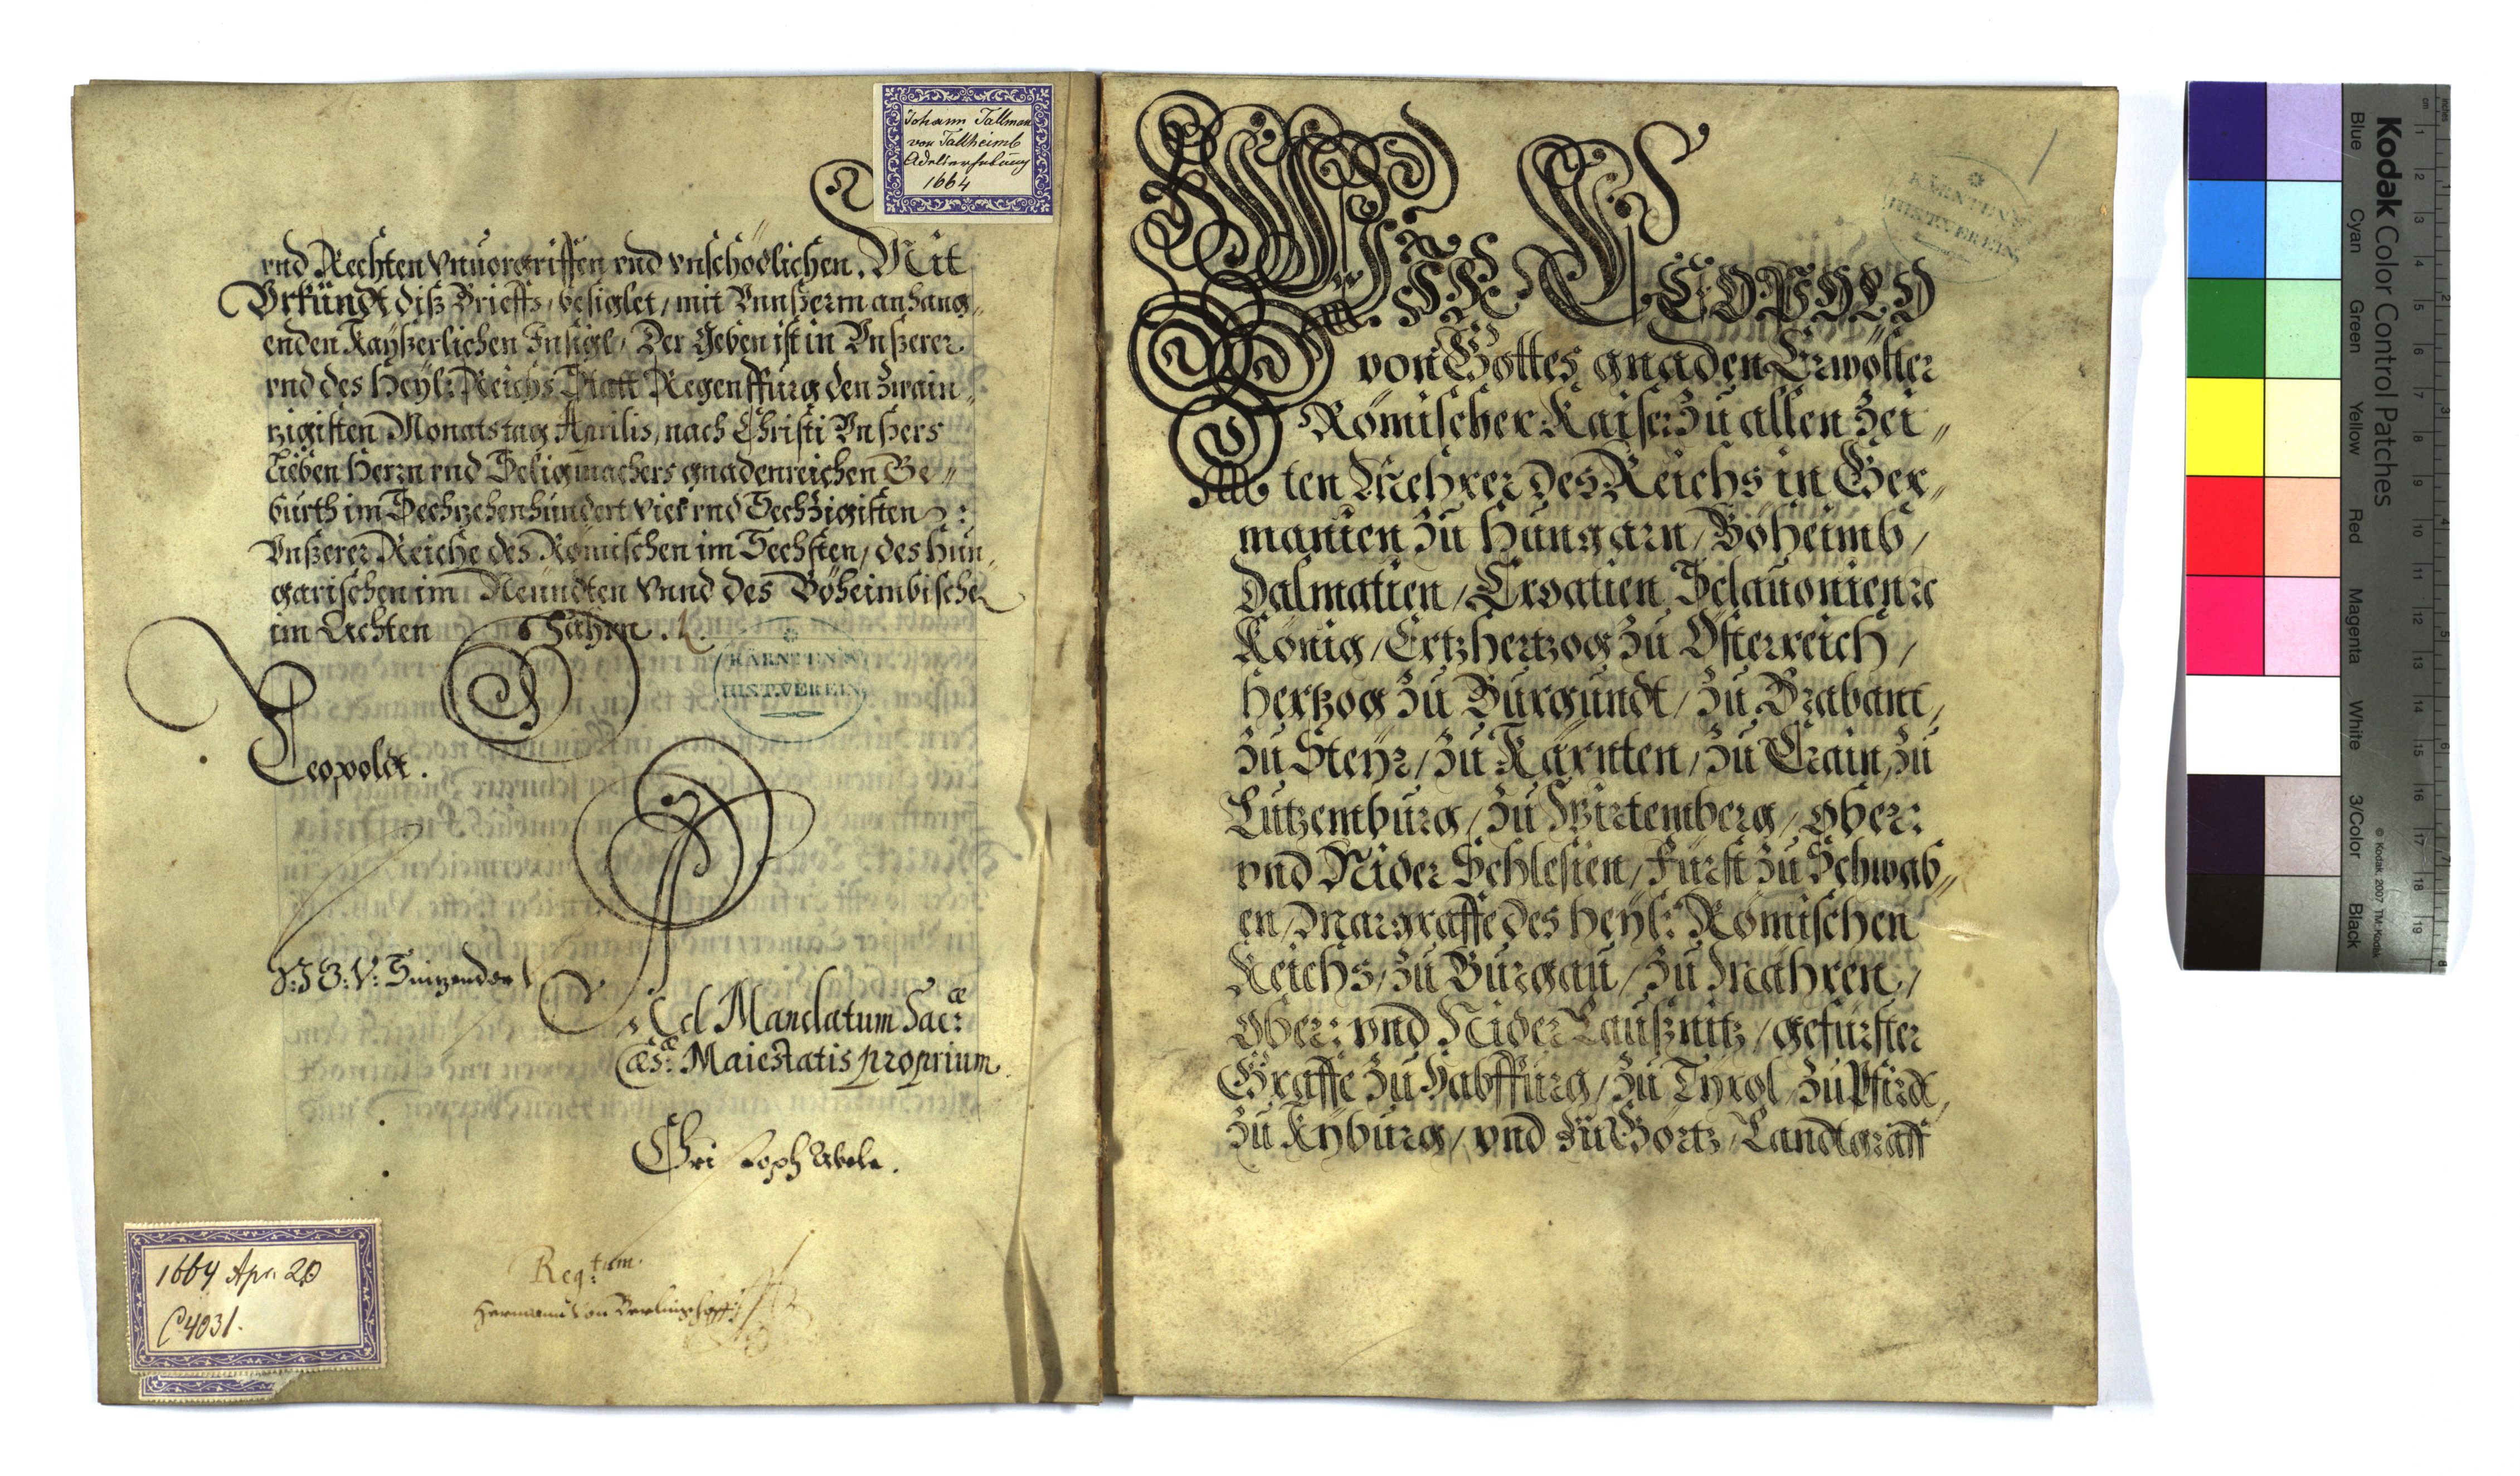 Johann Tallman
von Tallheimb
Adelserhebung
1664
vnd Rechten Vnuorgriffen vnd vnschödlichen. Mit
Vrkündt diß Brieffs / besiglet / mit Vnnßerm anhang„
enden Kayßerlichen Insigl / Der Geben ist in Vnßerer
vnd des Heyl: Reichs Statt Regenspurg den zwain„
tzigisten Monatstag Aprilis, nach Christi Vnßers
Lieben Herrn vnd Seligmachers gnadenreichen Ge„
burth im Sechzehenhundert Vier vnd Sechzigisten
Vnßerer Reiche des Römischen im Sechsten / des Hun„
garischen im Neündten Vnnd des Böheimbischen
im Achten Jahrn.
KÄRNTENS
HIST.VEREIN
Leopoldt.
V: Sintzendorf
Ad Mandatum Sacræ
Cæsæ: Maiestatis proprium.
Christoph Abele.
Regtum.
Hermann Von Berlinghoff
1664 Apr. 20
C 4031.
WIR LEOPOLD
von Gottes gnaden Erwölter
Römischer Kaiser Zu allen Zei„
ten Mehrer des Reichs in Ger„
manien Zu Hungarn / Böheimb /
Dalmatien / Croatien Sclauonien ꝛc
König / Ertzhertzog Zu Österreich /
Hertzog Zu Burgundt / Zu Brabant /
Zu Steyr / Zu Kärnten / Zu Crain, Zu
Lützemburg / Zu Wirtemberg / Ober:
vnd Nider Schlesien / Fürst Zu Schwab„
en / Margraffe des Heyl: Römischen
Reichs / Zu Burgau / Zu Mähren /
Ober: vnd Nider Laußnitz / gefürster
Graffe Zu Habspurg / Zu Tyrol / Zu Pfirdt,
Zu Kyburg / vnd Zu Görtz / Landtgraff
KÄRNTENS
HIST.VEREIN
Kodak Color Control Patches
Blue Cyan Green Yellow Red Magenta White 3/Color Black
© Kodak, 2007 TM: Kodak
inches 1 2 3 4 5 6 7 8
cm 1 2 3 4 5 6 7 8 9 10 11 12 13 14 15 16 17 18 19